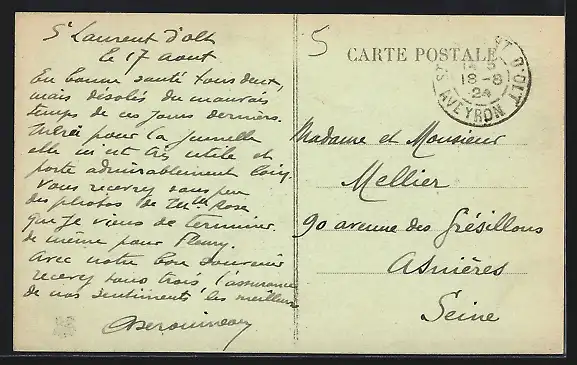 St Laurent d'olt
le 17 aout
En bonne santé tous deux,
mais désolés du mauvais
temps de ces jours derniers.
Merci pour la jumelle
elle m'est très utile et
porte admirablement loin,
Vous recevrez sous peu
des photos de Mlle Rose
que je viens de terminer.
de même pour Fleury.
Avec notre bon souvenir
recevez tous trois, l'assurance
de nos sentiments les meilleurs
5
CARTE POSTALE
ST D'OLT
18-8
24
AVEYRON
Madame et Monsieur
Mellier
90 avenue des Grésillons
Asnières
Seine